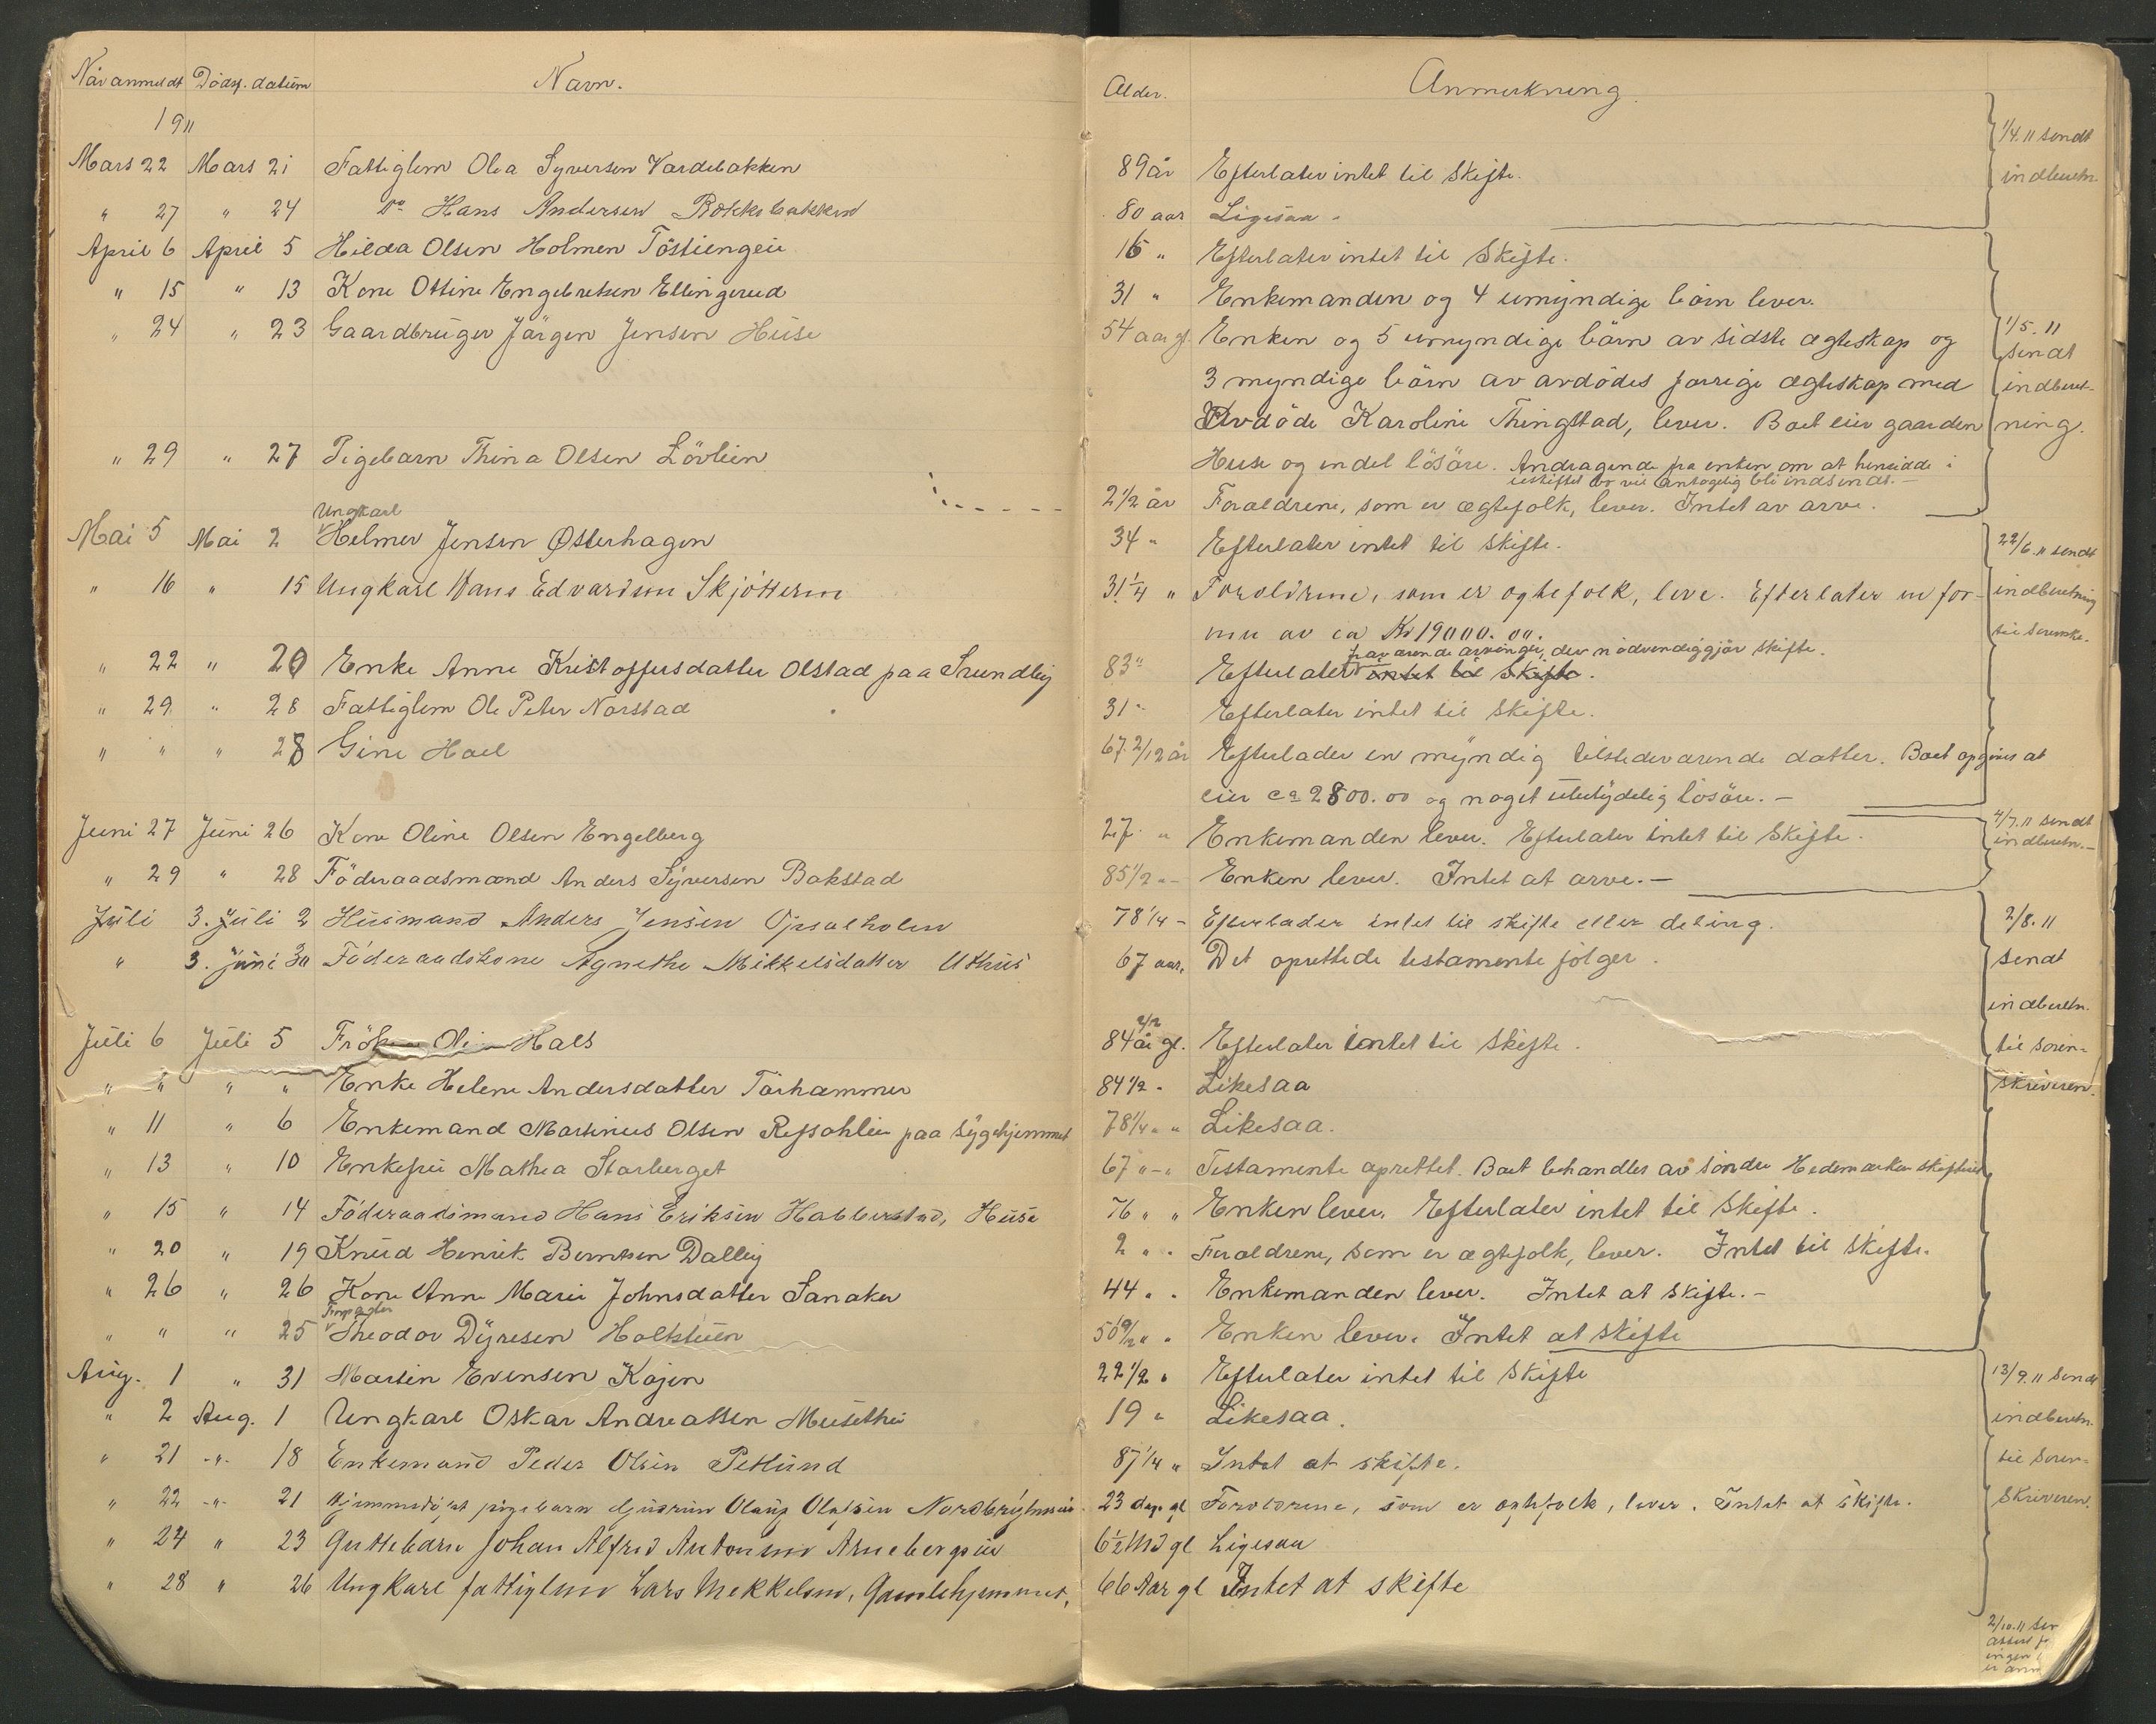 Når anmeldt Dödsf. datum Navn. Alder. Anmerkning.
1911
1/4.11 sendt
Mars 22 Mars 21 Fattiglem Olea Syversen Vardebakken 89 år Efterlater intet til Skifte.
indberetn.
" 27 " 24 Do Hans Andersen 80 aar Ligesaa -
April 6 April 5 Hilda Olsen Holmen Töstiengen 16 " Efterlater intet til Skifte.
" 15 " 13 Kone Ottine Engebretsen Ellingerud 31 " Enkemanden og 4 umyndige börn lever.
" 24 " 23 Gaardbruger Jörgen Jensen Huse 54 aar gl. Enken og 5 umyndige börn av sidste ægteskap og
1/5.11
sendt
3 myndige börn av avdödes forrige ægteskap med
indberet-
Avdöde Karoline Thingstad, lever. Boet eier gaarden
ning.
" 29 " 27 Pigebarn Thina Olsen Lövlien
Huse og endel lösöre. Andragende fra enken om at hensidde i
uskiftet bo vil antagelig bli indsendt. -
2 1/2 år Forældrene, som er ægtefolk, lever. Intet av arve.
Ungkarl
Mai 5 Mai 2 Helmer Jensen Østerhagen 34 " Efterlater intet til skifte.
22/6.11 sendt
" 16 " 15 Ungkarl Hans Edvardsen Skjötteren 31 1/4 " Forældrene, som er egtefolk, leve. Efterlater en for-
indberetning
mu av ca Kr 19000.00.
til sorenskr.
fraværende arvinger, der nödvendiggjör skifte.
" 22 " 20 Enke Anne Kristoffersdatter Olstad paa Grundby 83 " Efterlater intet til Skifte.
" 29 " 28 Fattiglem Ole Peter Norstad 31 " Efterlater intet til skifte.
" " " 28 Gine Hoel 67 2/12 år Efterlader en myndig tilstedeværende datter. Boet opgives at
eier ca 2800.00 og noget ubetydelig lösöre. -
Juni 27 Juni 26 Kone Oline Olsen Engelberg 27 " Enkemanden lever. Efterlater intet til Skifte.
4/7.11 sendt
indberetn. -
" 29 " 28 Föderaadsmand Anders Syversen Bakstad 85 1/2 " - Enken lever. Intet at arve. -
Juli 3. Juli 2 Husmand Anders Jensen Opsalholen 78 1/4 - Efterlader intet til skifte eller deling.
2/8.11
" 3. Juni 30 Föderaadskone Agnethe Mikkelsdatter Uthus 67 aar. Det oprettede testamente fölger.
sendt
indberetn.
Juli 6 Juli 5 Fröken Hals 84 år gl. Efterlater intet til Skifte.
til soren-
" " " " Enke Helene Andersdatter Törhammer 84 1/2 " Likesaa
skriveren.
" 11 " 6 Enkemand Martinius Olsen Refsahlen paa Sygehjemmet 78 1/4 " " Likesaa.
" 13 " 10 Enkefru Mathea Storberget 67 " - " Testamente oprettet. Boet behandles av söndre Hedemarken skifteret
" 15 " 14 Föderaadsmand Hans Eriksen Habberstad, Huse 76 " " Enken lever. Efterlater intet til Skifte.
" 20 " 19 Knud Henrik Berntsen Dalby 2 " " Forældrene, som er ægtefolk, lever. Intet til skifte.
" 26 " 26 Kone Anne Marie Johnsdatter Sanaker 44 " " Enkemanden lever. Intet at skifte. -
Forpagter
" " " 25 Theodor Dyresen Holtstuen 50 " " Enken lever. Intet at skifte
Aug. 1 " 31 Martin Evensen Kojen 22 1/2 " Efterlater intet til Skifte
13/9.11 sendt
" 2 Aug. 1 Ungkarl Oskar Andreassen Musethei 19 " Likesaa.
indberetn.
" 21 -"- 18 Enkemand Peder Olsen Petlund 87 1/4 " Intet at skifte.
til soren-
" 22 -"- 21 Hjemmedöpt pigebarn Gudrun Olaug Olafsen 23 dage gl Foreldrene, som er egtefolk, lever. Intet at skifte.
skriveren.
" 24 " 23 Guttebarn Johan Alfred Antonsen Arnebergsie 6 1/2 Md gl Ligesaa
" 28 " 26 Ungkarl fattiglem Lars Mekkelsen, Gamlehjemmet, 66 Aar gl Intet at skifte
2/10.11
ingen